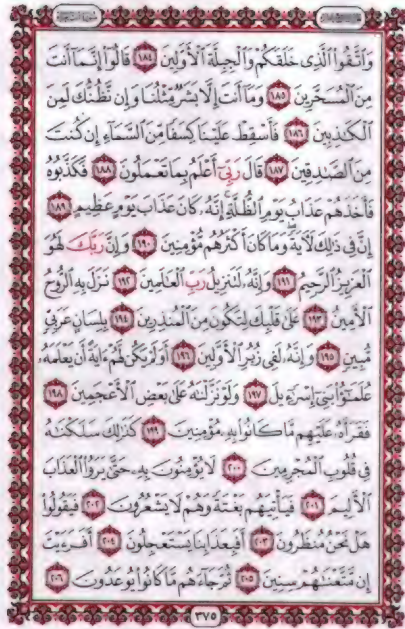 وَاتَّقُوا الَّذِي خَلَقَكُمْ وَالْجِبِلَّةَ الْأَوَّلِينَ ١٨٤ قَالُوا إِنَّمَا أَنتَ
مِنَ الْمُسَحَّرِينَ ١٨٥ وَمَا أَنتَ إِلَّا بَشَرٌ مِّثْلُنَا وَإِن نَّظُنُّكَ لَمِنَ
الْكَاذِبِينَ ١٨٦ فَأَسْقِطْ عَلَيْنَا كِسَفًا مِّنَ السَّمَاءِ إِن كُنتَ
مِنَ الصَّادِقِينَ ١٨٧ قَالَ رَبِّي أَعْلَمُ بِمَا تَعْمَلُونَ ١٨٨ فَكَذَّبُوهُ
فَأَخَذَهُمْ عَذَابُ يَوْمِ الظُّلَّةِ إِنَّهُ كَانَ عَذَابَ يَوْمٍ عَظِيمٍ ١٨٩
إِنَّ فِي ذَلِكَ لَآيَةً وَمَا كَانَ أَكْثَرُهُم مُّؤْمِنِينَ ١٩٠ وَإِنَّ رَبَّكَ لَهُوَ
الْعَزِيزُ الرَّحِيمُ ١٩١ وَإِنَّهُ لَتَنزِيلُ رَبِّ الْعَالَمِينَ ١٩٢ نَزَلَ بِهِ الرُّوحُ
الْأَمِينُ ١٩٣ عَلَى قَلْبِكَ لِتَكُونَ مِنَ الْمُنذِرِينَ ١٩٤ بِلِسَانٍ عَرَبِيٍّ
مُّبِينٍ ١٩٥ وَإِنَّهُ لَفِي زُبُرِ الْأَوَّلِينَ ١٩٦ أَوَلَمْ يَكُن لَّهُمْ آيَةً أَن يَعْلَمَهُ
عُلَمَٰٓؤُا بَنِي إِسْرَائِيلَ ١٩٧ وَلَوْ نَزَّلْنَاهُ عَلَى بَعْضِ الْأَعْجَمِينَ ١٩٨
فَقَرَأَهُ عَلَيْهِم مَّا كَانُوا بِهِ مُؤْمِنِينَ ١٩٩ كَذَلِكَ سَلَكْنَاهُ
فِي قُلُوبِ الْمُجْرِمِينَ ٢٠٠ لَا يُؤْمِنُونَ بِهِ حَتَّى يَرَوُا الْعَذَابَ
الْأَلِيمَ ٢٠١ فَيَأْتِيَهُم بَغْتَةً وَهُمْ لَا يَشْعُرُونَ ٢٠٢ فَيَقُولُوا
هَلْ نَحْنُ مُنظَرُونَ ٢٠٣ أَفَبِعَذَابِنَا يَسْتَعْجِلُونَ ٢٠٤ أَفَرَأَيْتَ
إِن مَّتَّعْنَاهُمْ سِنِينَ ٢٠٥ ثُمَّ جَاءَهُم مَّا كَانُوا يُوعَدُونَ ٢٠٦
٣٧٥